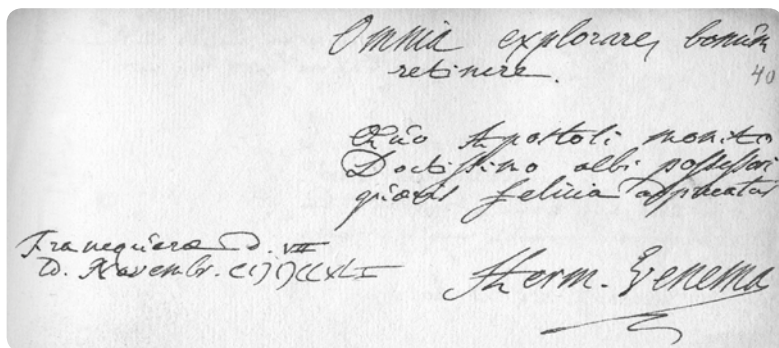 Omnia explorare, bonum
retinere.
40
Quo Apostoli monito
Doctissimo albi possessori
quaevis felicia apprecatur
Franequerae D. VII
D. Novembr. CIↃIↃCCXLI
Herm. Venema